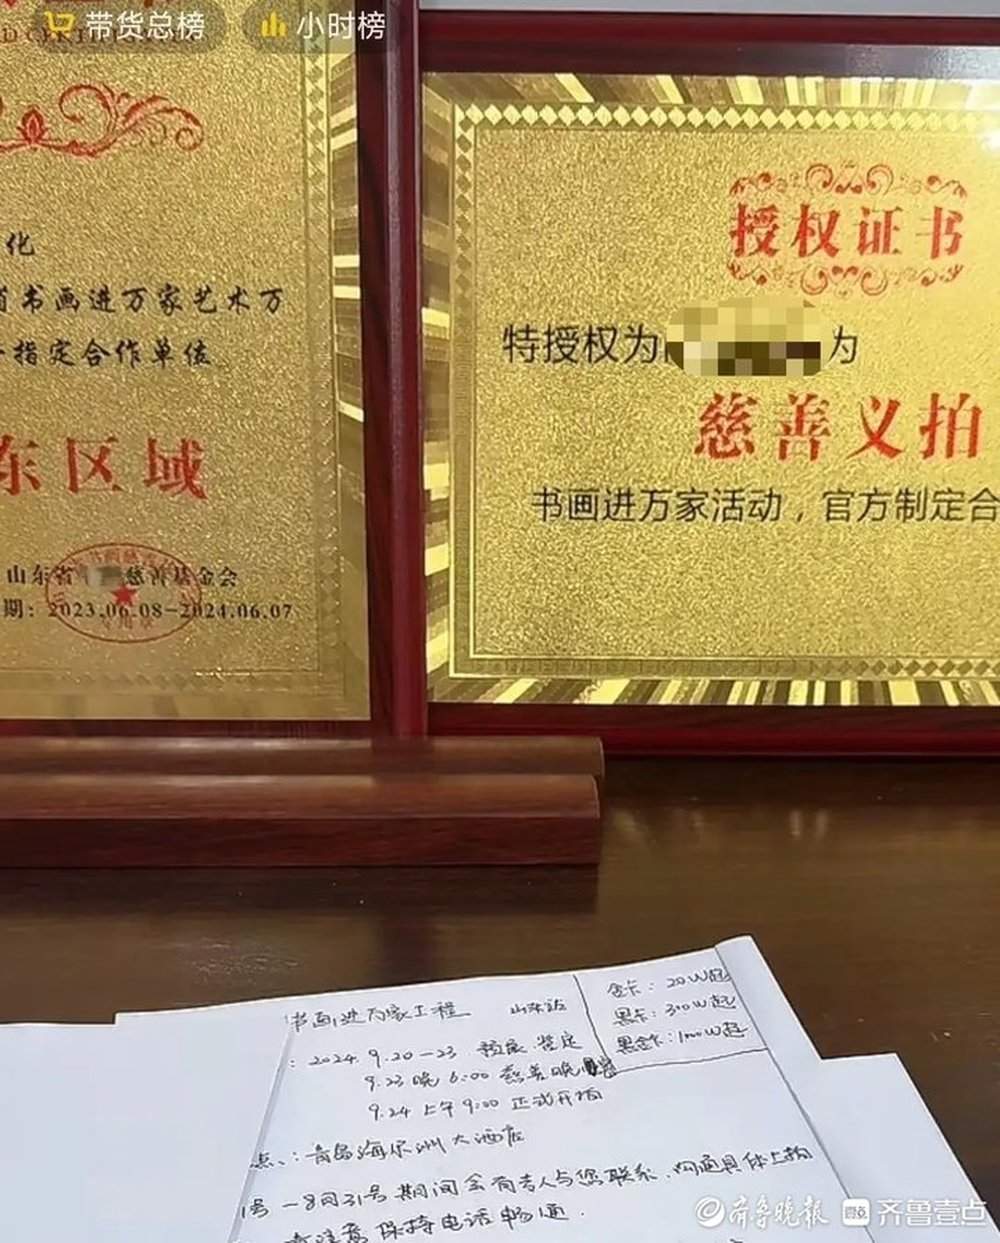 带货总榜
小时榜
化
省书画进万家艺术万
指定合作单位
东区域
山东省
慈善基金会
期：2023.06.08-2024.06.07
授权证书
特授权为
为
慈善义拍
书画进万家活动，官方制定合
书画进万家工程 山东站
金卡：20W起
黑卡：300W起
黑金卡：1000W起
：2024.9.20-23 预展.鉴定
9.23晚 6:00 慈善晚
9.24 上午 9:00 正式开拍
点：青岛海尔洲大酒店
1号-8月31号期间会有专人与您联系.沟通具体上拍
注意保持电话畅通.
齐鲁晚报
齐鲁壹点